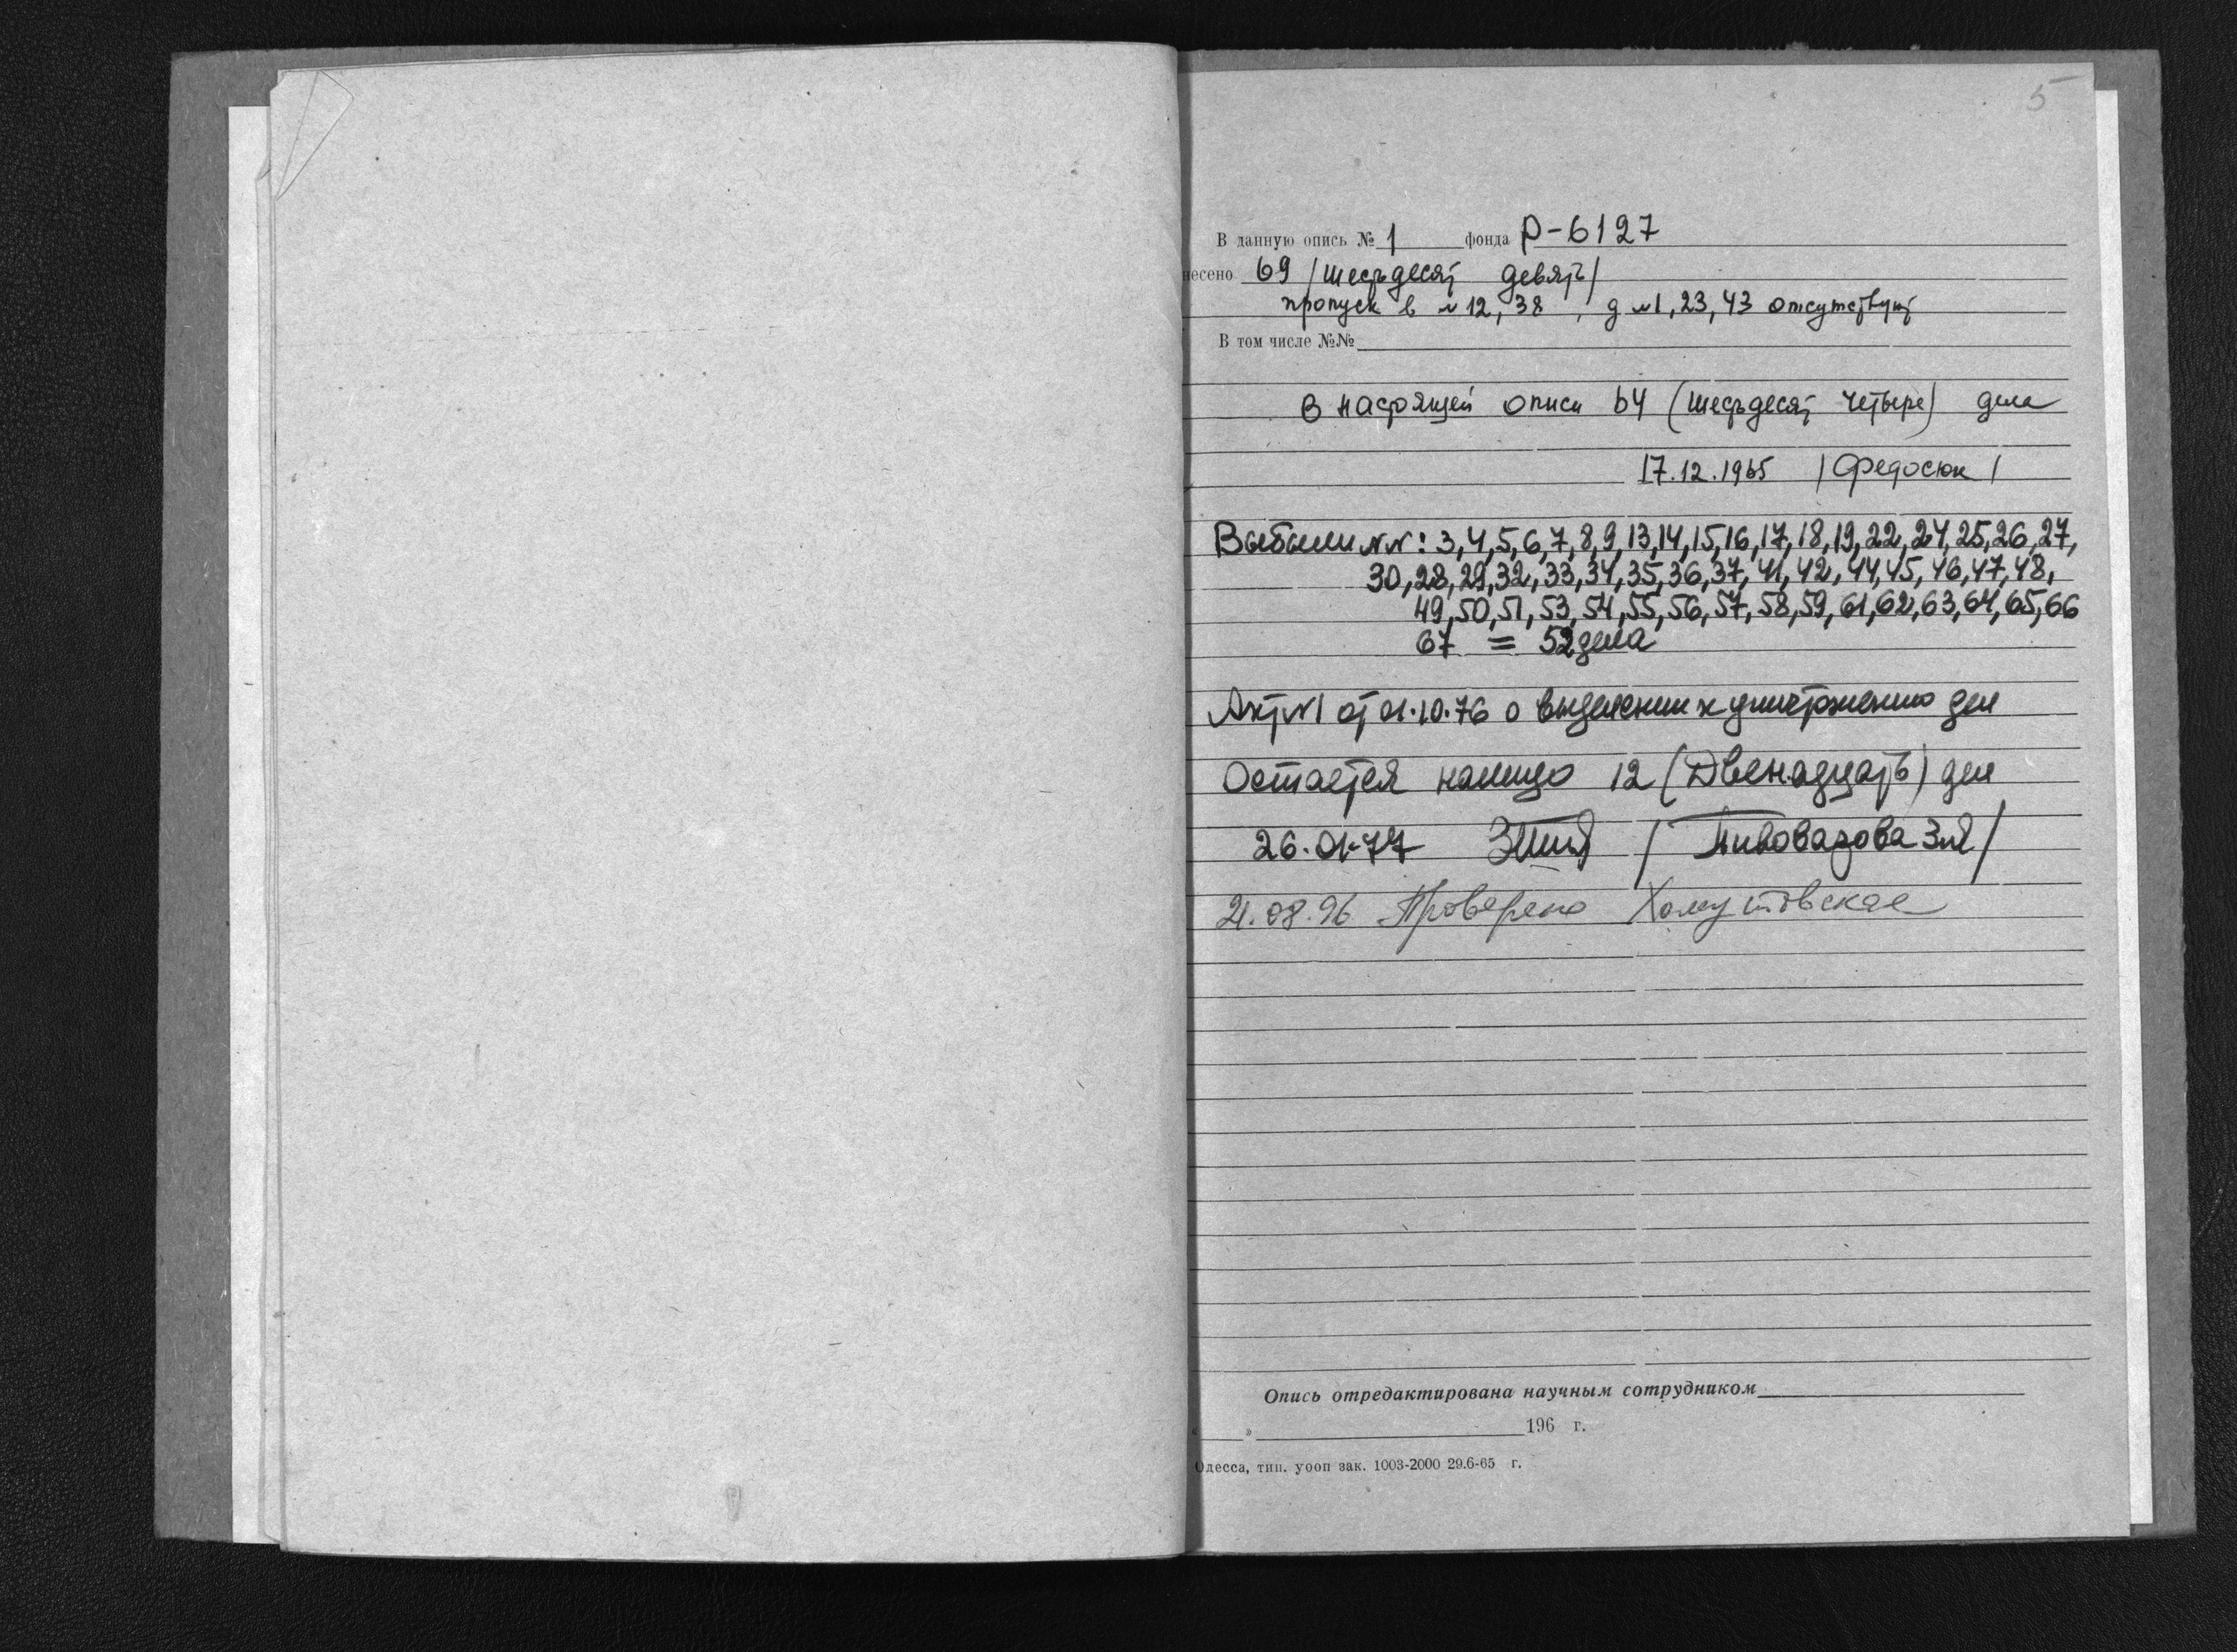 5
В данную опись № 1 фонда Р-6127
несено 69 /шестьдесят девять/
пропуск в №12, 38, д №1, 23, 43 отсутствуют
В том числе №№
В настоящей описи 64 (шестьдесят четыре) дела
17.12.1965 /Федосюк/
Выбыли №№: 3,4,5,6,7,8,9,13,14,15,16,17,18,19,22,24,25,26,27,
30,28,29,32,33,34,35,36,37,41,42,44,45,46,47,48,
49,50,51,53,54,55,56,57,58,59,61,62,63,64,65,66
67 = 52 дела
Акт №1 от 01.10.76 о выделении к уничтожению дел
Остается налицо 12 (Двенадцать) дел
26.01.77 /Пивоварова /
21.08.96 Проверено Хомутовская
Опись отредактирована научным сотрудником
« » 196 г.
Одесса, тип. уооп зак. 1003-2000 29.6-65 г.